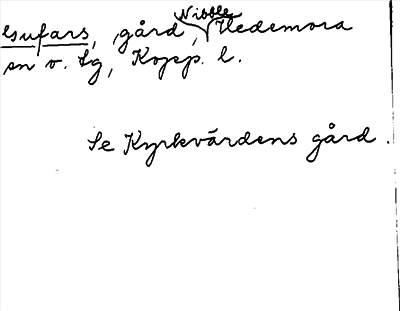 Gsufars, gård, Nibble, Hedemora
sn o. Sg, Kopp. l.
Se Kyrkvärdens gård.